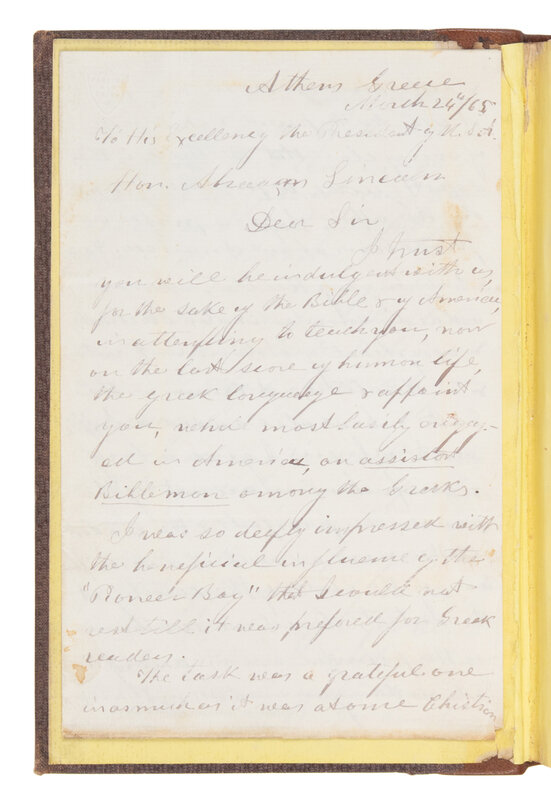 Athens Greece
March 24th/65
To His Excellency the President of U.S.A.
Hon. Abraham Lincoln
Dear Sir
I trust
you will be indulgent with us,
for the sake of the Bible & of America,
in attempting to teach you, now
on the last score of human life,
the greek language & appoint
you, while most busily engag-
ed in America, an assistant
Bibleman among the Greeks.
I was so deeply impressed with
the beneficial influence of the
"Pioneer Boy" that I would not
rest till it was prepared for Greek
readers.
The task was a grateful one
inasmuch as it was at once Christian